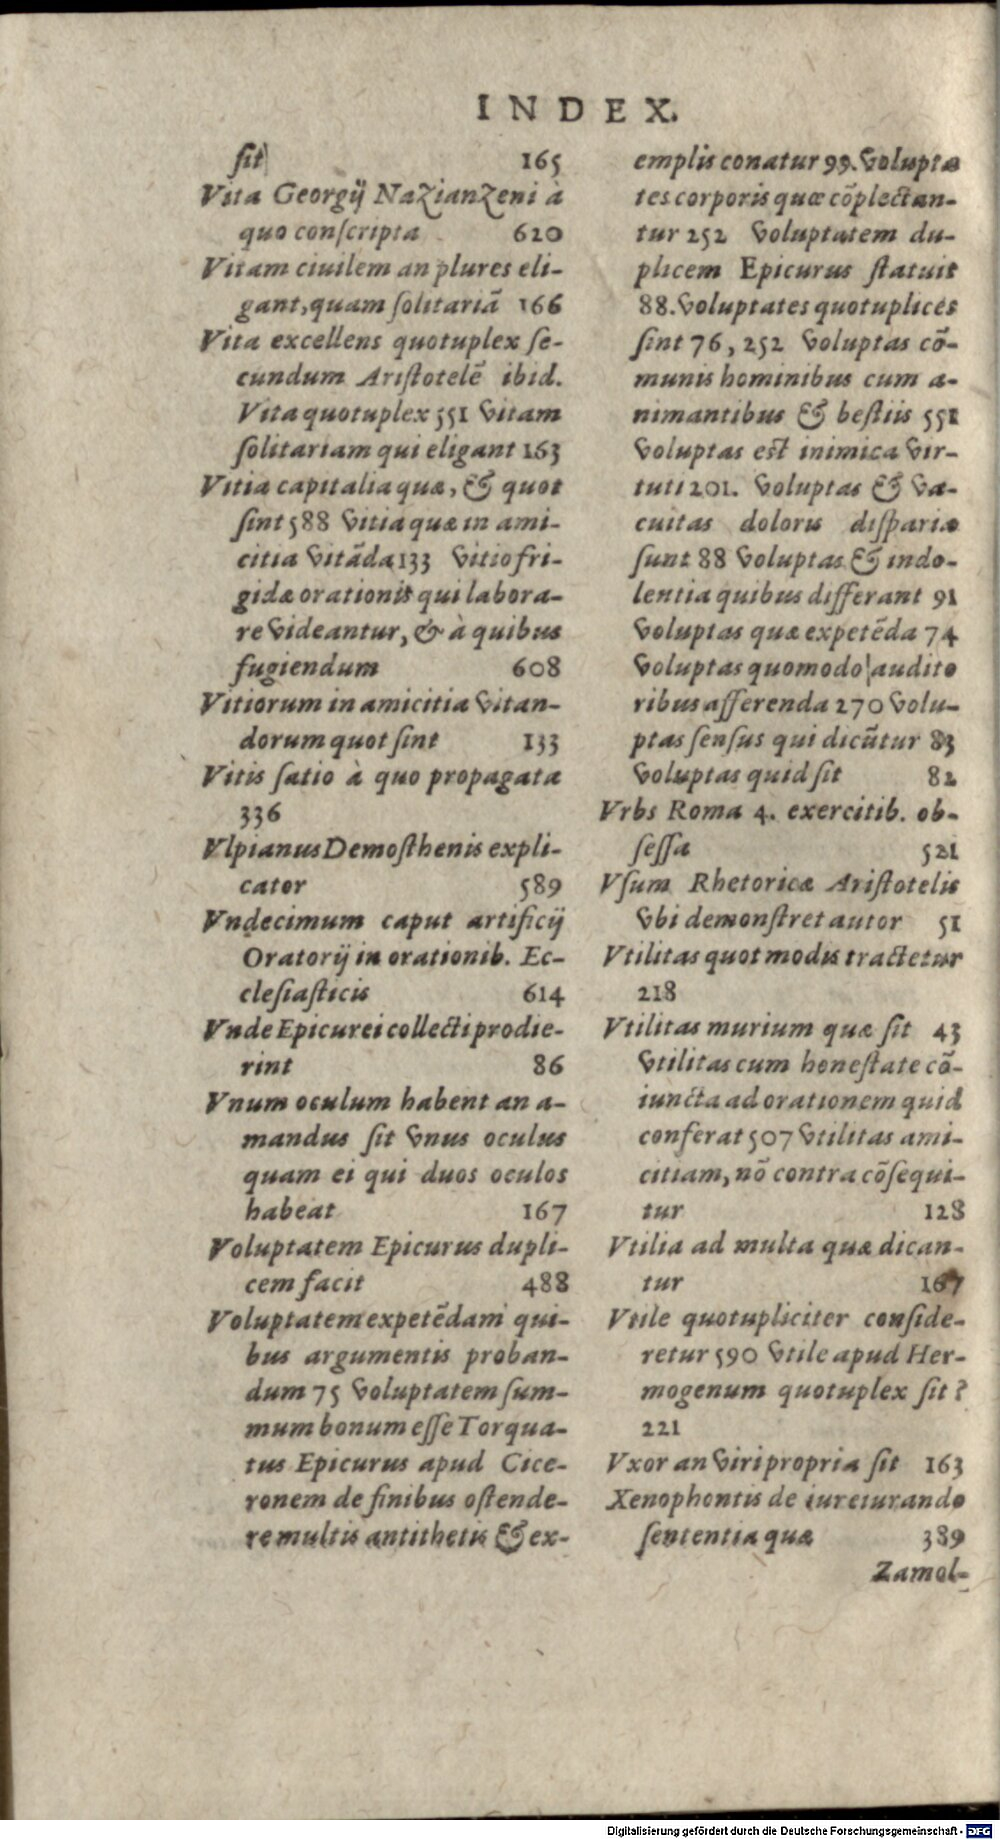 INDEX.
ſit 165
Vita Georgij Nazianzeni à
quo conſcripta 620
Vitam ciuilem an plures eli-
gant, quam ſolitariā 166
Vita excellens quotuplex ſe-
cundum Ariſtotelē ibid.
Vita quotuplex 551 vitam
ſolitariam qui eligant 163
Vitia capitalia quæ, & quot
ſint 588 vitia quæ in ami-
citia vitāda 133 vitio fri-
gidæ orationis qui labora-
re videantur, & à quibus
fugiendum 608
Vitiorum in amicitia vitan-
dorum quot ſint 133
Vitis ſatio à quo propagata
336
Vlpianus Demoſthenis expli-
cator 589
Vndecimum caput artificij
Oratorij in orationib. Ec-
cleſiaſticis 614
Vnde Epicurei collecti prodie-
rint 86
Vnum oculum habent an a-
mandus ſit vnus oculus
quam ei qui duos oculos
habeat 167
Voluptatem Epicurus dupli-
cem facit 488
Voluptatem expetēdam qui-
bus argumentis proban-
dum 75 voluptatem ſum-
mum bonum eſſe Torqua-
tus Epicurus apud Cice-
ronem de finibus oſtende-
re multis antithetis & ex-
emplis conatur 99. volupta
tes corporis quæ cōplectan-
tur 252 voluptatem du-
plicem Epicurus ſtatuit
88. voluptates quotuplices
ſint 76, 252 voluptas cō-
munis hominibus cum a-
nimantibus & beſtiis 551
voluptas est inimica vir-
tuti 201. voluptas & va-
cuitas doloris diſparia
ſunt 88 voluptas & indo-
lentia quibus differant 91
voluptas quæ expetēda 74
voluptas quomodo audito
ribus afferenda 270 volu-
ptas ſenſus qui dicūtur 83
voluptas quid ſit 82
Vrbs Roma 4. exercitib. ob-
ſeſſa 521
Vſum Rhetoricæ Ariſtotelis
vbi demonſtret autor 51
Vtilitas quot modis tractetur
218
Vtilitas murium quæ ſit 43
vtilitas cum honeſtate cō-
iuncta ad orationem quid
conferat 507 vtilitas ami-
citiam, nō contra cōſequi-
tur 128
Vtilia ad multa quæ dican-
tur 167
Vtile quotupliciter conſide-
retur 590 vtile apud Her-
mogenum quotuplex ſit?
221
Vxor an viri propria ſit 163
Xenophontis de iureiurando
ſententia quæ 389
Zamol-
Digitalisierung gefördert durch die Deutsche Forschungsgemeinschaft - DFG